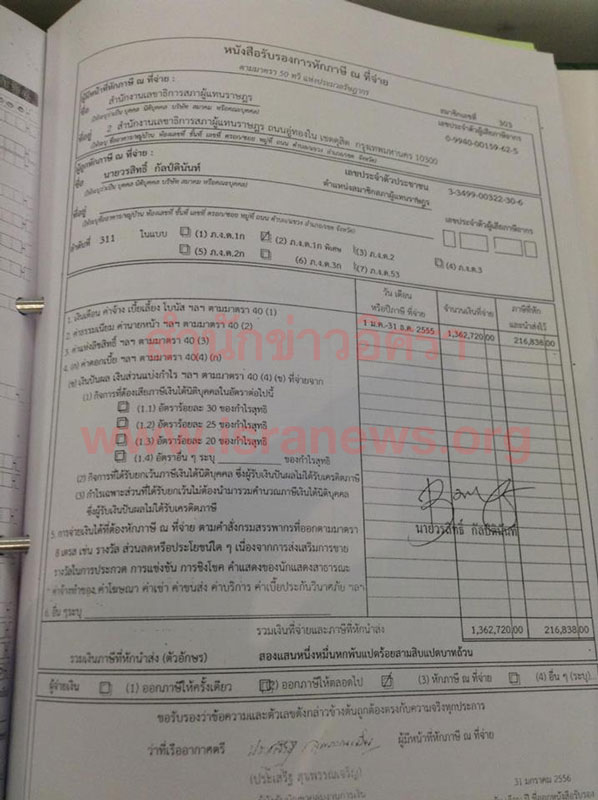 หนังสือรับรองการหักภาษี ณ ที่จ่าย
ตามมาตรา 50 ทวิ แห่งประมวลรัษฎากร
ผู้มีหน้าที่หักภาษี ณ ที่จ่าย :
สมาชิกเลขที่ 303
ชื่อ สำนักงานเลขาธิการสภาผู้แทนราษฎร
เลขประจำตัวผู้เสียภาษีอากร
(ให้ระบุว่าเป็น บุคคล นิติบุคคล บริษัท สมาคม หรือคณะบุคคล)
0-9940-00159-62-5
ที่อยู่ 2 สำนักงานเลขาธิการสภาผู้แทนราษฎร ถนนอู่ทองใน เขตดุสิต กรุงเทพมหานคร 10300
ผู้ถูกหักภาษี ณ ที่จ่าย :
เลขประจำตัวประชาชน 3-3499-00322-30-6
ชื่อ นายวรสิทธิ์ กัลป์ตินันท์
ตำแหน่งสมาชิกสภาผู้แทนราษฎร
(ให้ระบุว่าเป็น บุคคล นิติบุคคล บริษัท สมาคม หรือคณะบุคคล)
เลขประจำตัวผู้เสียภาษีอากร
ที่อยู่
ลำดับที่ 311 ในแบบ (1) ภ.ง.ด.1ก (2) ภ.ง.ด.1ก พิเศษ (3) ภ.ง.ด.2 (4) ภ.ง.ด.3
(5) ภ.ง.ด.2ก (6) ภ.ง.ด.3ก (7) ภ.ง.ด.53
วัน เดือน หรือปีภาษี ที่จ่าย จำนวนเงินที่จ่าย ภาษีที่หัก และนำส่งไว้
1. เงินเดือน ค่าจ้าง เบี้ยเลี้ยง โบนัส ฯลฯ ตามมาตรา 40 (1) 1 ม.ค.-31 ธ.ค. 2555 1,362,720.00 216,838.00
2. ค่าธรรมเนียม ค่านายหน้า ฯลฯ ตามมาตรา 40 (2)
3. ค่าแห่งลิขสิทธิ์ ฯลฯ ตามมาตรา 40 (3)
4. (ก) ค่าดอกเบี้ย ฯลฯ ตามมาตรา 40(4) (ก)
สำนักข่าวอิศรา
(ข) เงินปันผล เงินส่วนแบ่งกำไร ฯลฯ ตามมาตรา 40 (4) (ข) ที่จ่ายจาก
(1) กิจการที่ต้องเสียภาษีเงินได้นิติบุคคลในอัตราต่อไปนี้
(1.1) อัตราร้อยละ 30 ของกำไรสุทธิ
(1.2) อัตราร้อยละ 25 ของกำไรสุทธิ
(1.3) อัตราร้อยละ 20 ของกำไรสุทธิ
www.isranews.org
(1.4) อัตราอื่น ๆ ระบุ ของกำไรสุทธิ
(2) กิจการที่ได้รับยกเว้นภาษีเงินได้นิติบุคคล ซึ่งผู้รับเงินปันผลไม่ได้รับเครดิตภาษี
(3) กำไรเฉพาะส่วนที่ได้รับยกเว้นไม่ต้องนำมารวมคำนวณภาษีเงินได้นิติบุคคล
ซึ่งผู้รับเงินปันผลไม่ได้รับเครดิตภาษี
นายวรสิทธิ์ กัลป์ตินันท์
5. การจ่ายเงินได้ที่ต้องหักภาษี ณ ที่จ่าย ตามคำสั่งกรมสรรพากรที่ออกตามมาตรา
3 เตรส เช่น รางวัล ส่วนลดหรือประโยชน์ใด ๆ เนื่องจากการส่งเสริมการขาย
รางวัลในการประกวด การแข่งขัน การชิงโชค ค่าแสดงของนักแสดงสาธารณะ
ค่าจ้างทำของ ค่าโฆษณา ค่าเช่า ค่าขนส่ง ค่าบริการ ค่าเบี้ยประกันวินาศภัย ฯลฯ
6. อื่น ๆ ระบุ
รวมเงินที่จ่ายและภาษีที่หักนำส่ง 1,362,720.00 216,838.00
รวมเงินภาษีที่หักนำส่ง (ตัวอักษร) สองแสนหนึ่งหมื่นหกพันแปดร้อยสามสิบแปดบาทถ้วน
ผู้จ่ายเงิน (1) ออกภาษีให้ครั้งเดียว (2) ออกภาษีให้ตลอดไป (3) หักภาษี ณ ที่จ่าย (4) อื่น ๆ (ระบุ)
ขอรับรองว่าข้อความและตัวเลขดังกล่าวข้างต้นถูกต้องตรงกับความจริงทุกประการ
ว่าที่เรืออากาศตรี ผู้มีหน้าที่หักภาษี ณ ที่จ่าย
31 มกราคม 2556